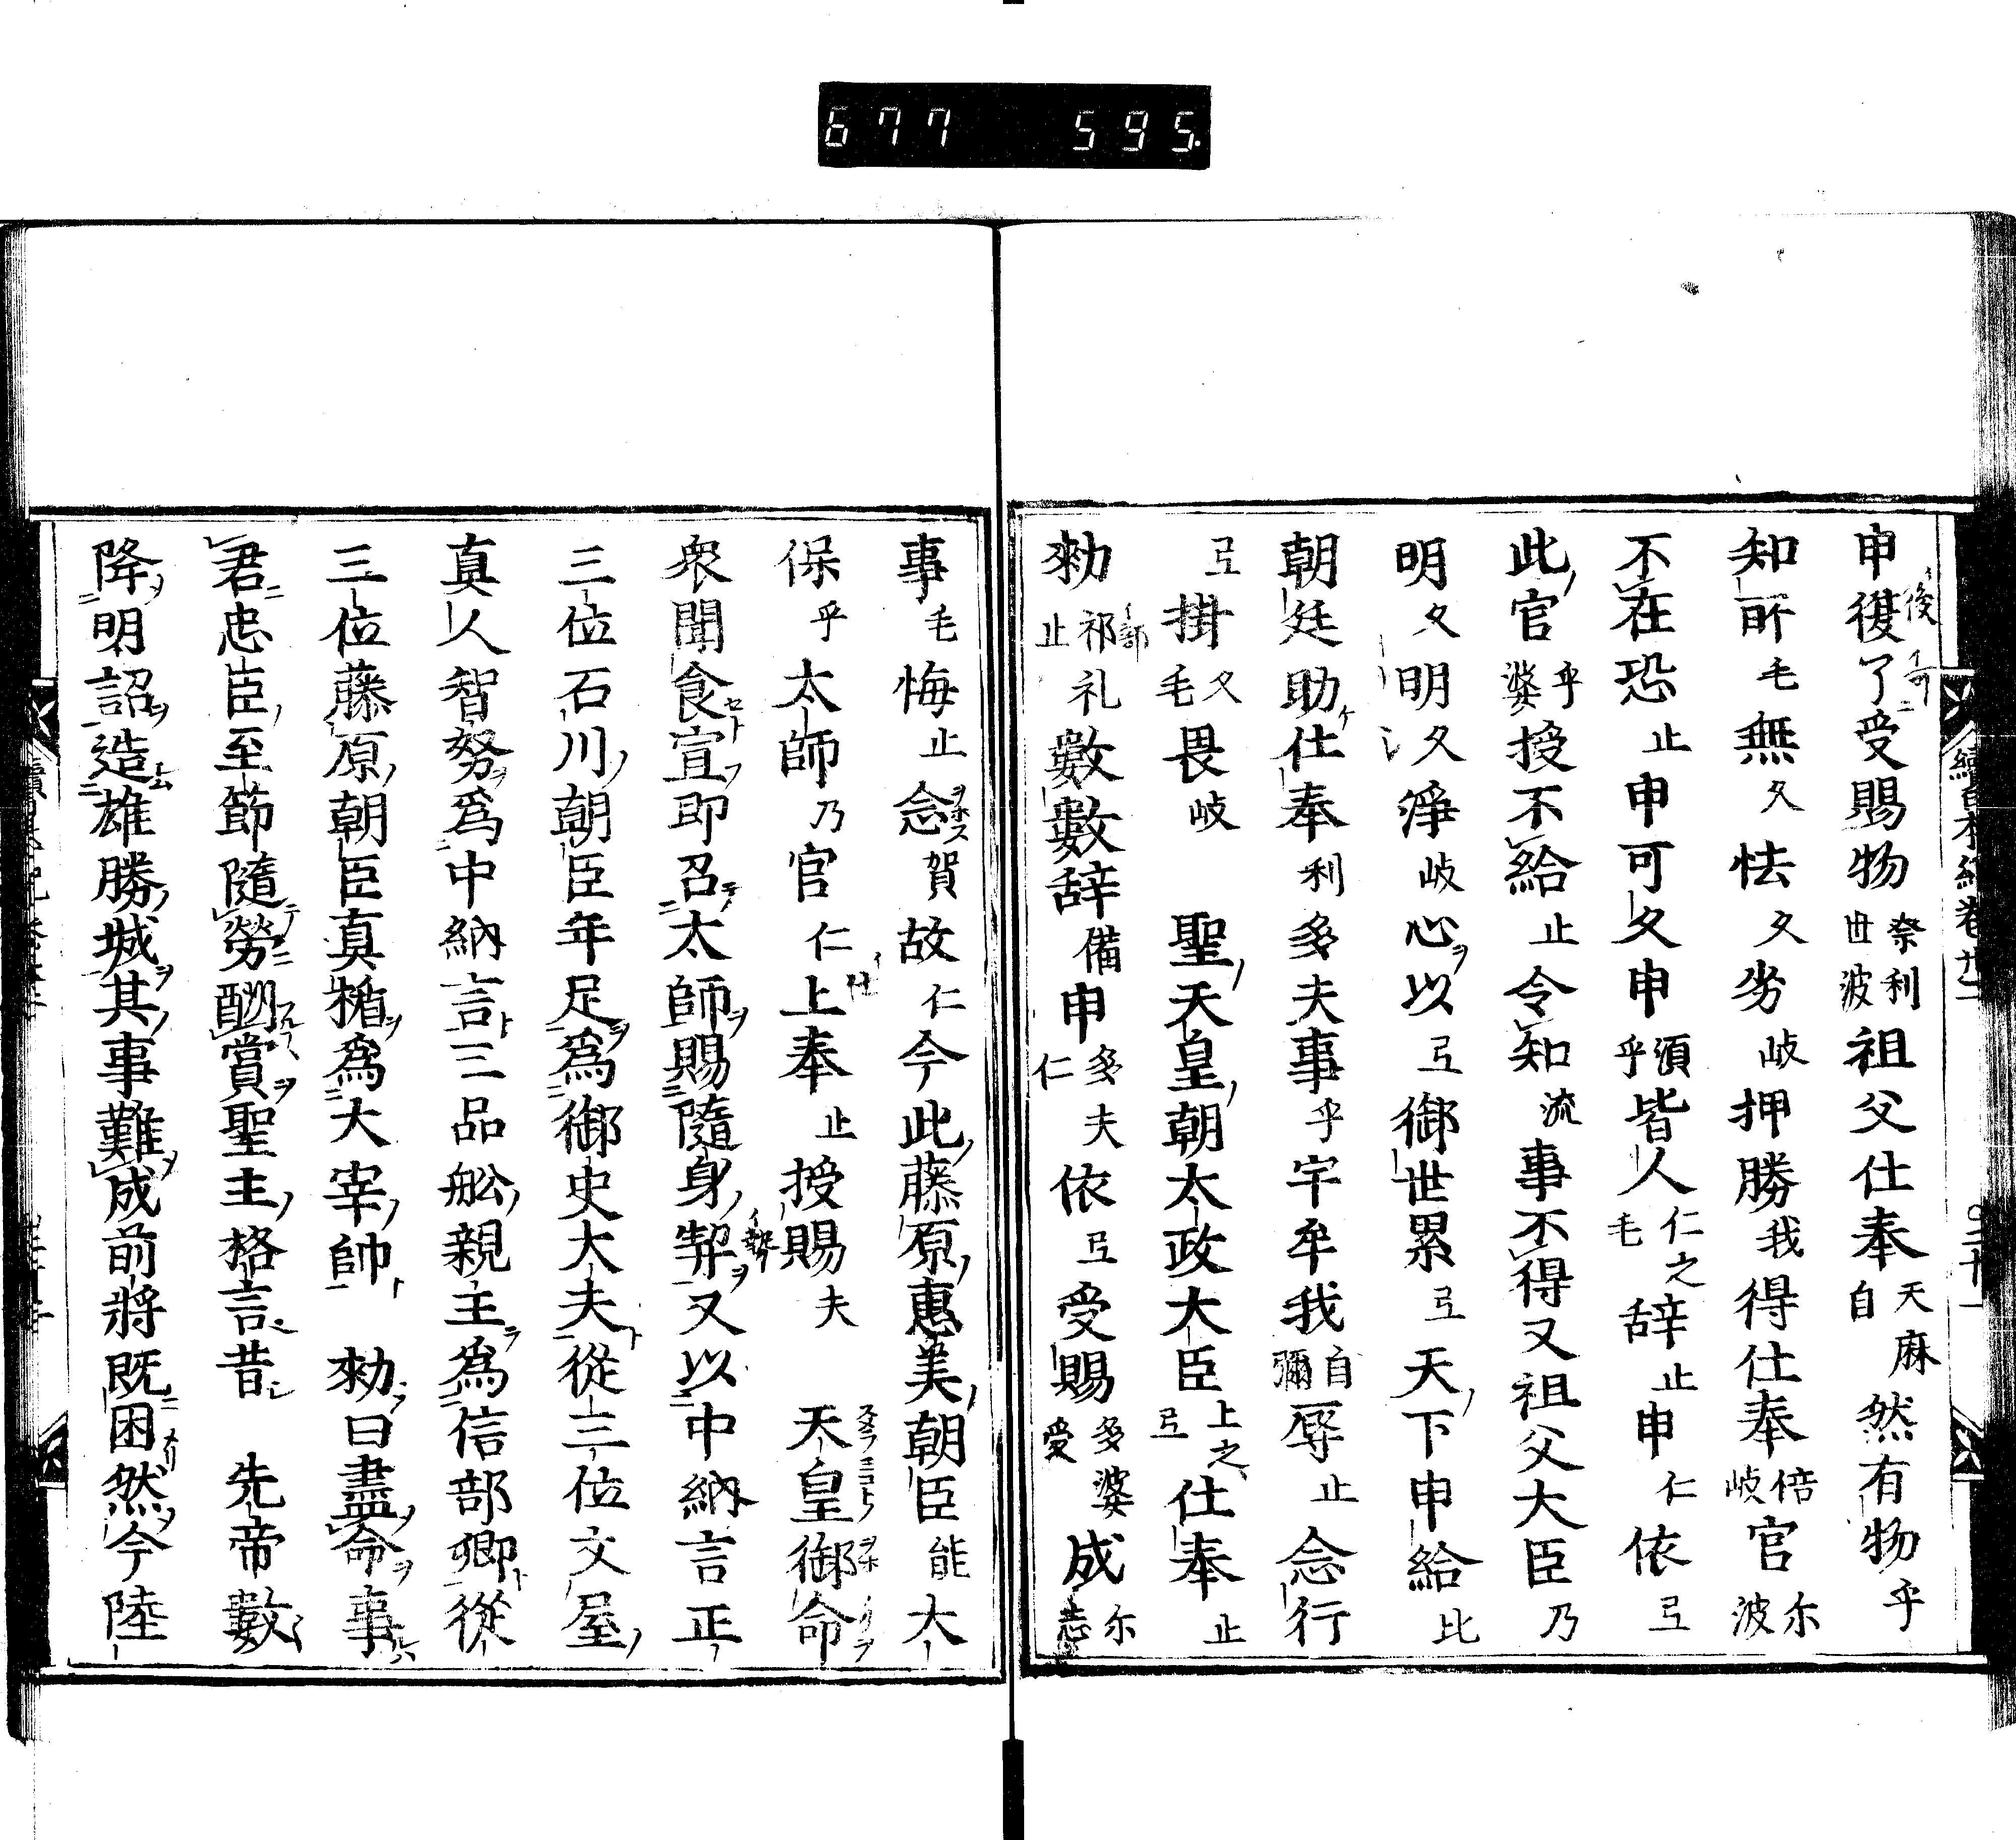 677 595.
申復了受賜物奈利世波祖父仕奉天麻自然有物乎
知所毛無久怯久劣岐押勝我得仕奉倍岐官尓波
不在恐止申可久申須乎皆人仁之毛辞止申仁依弖
此官乎婆授不給止令知流事不得又祖父大臣乃
明久明久淨岐心以弖御世累弖天下申給比
朝廷助仕奉利多夫事乎宇牟我自彌辱止念行
弖掛久毛畏岐 聖天皇朝太政大臣止之弖仕奉止
勅祁礼止數數辞備申多夫仁依弖受賜多婆受成尓志
事毛悔止念賀故仁今此藤原惠美朝臣能大
保乎太師乃官仁上奉止授賜夫 天皇御命
衆聞食宣即召太師賜隨身契又以中納言正
三位石川朝臣年足為御史大夫從三位文屋
真人智努為中納言三品舩親王為信部卿從
三位藤原朝臣真楯為大宰帥 勅曰盡命事
君忠臣至節隨勞酬賞聖主格言昔 先帝數
降明詔造雄勝城其事難成前將既困然今陸